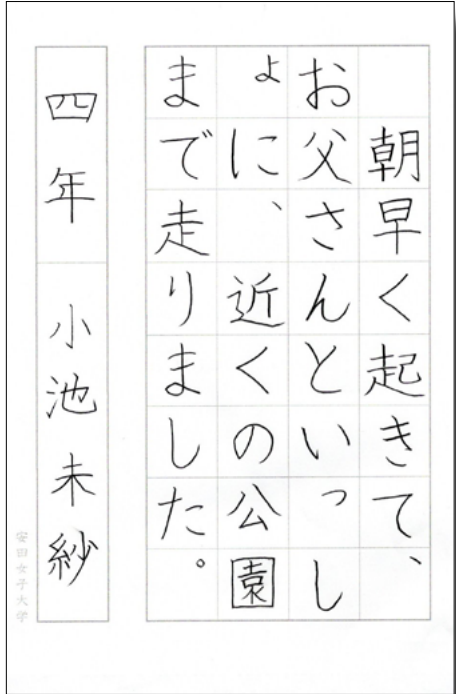 朝早く起きて、
お父さんといっし
ょに、近くの公園
まで走りました。
四年 小池未紗
安田女子大学